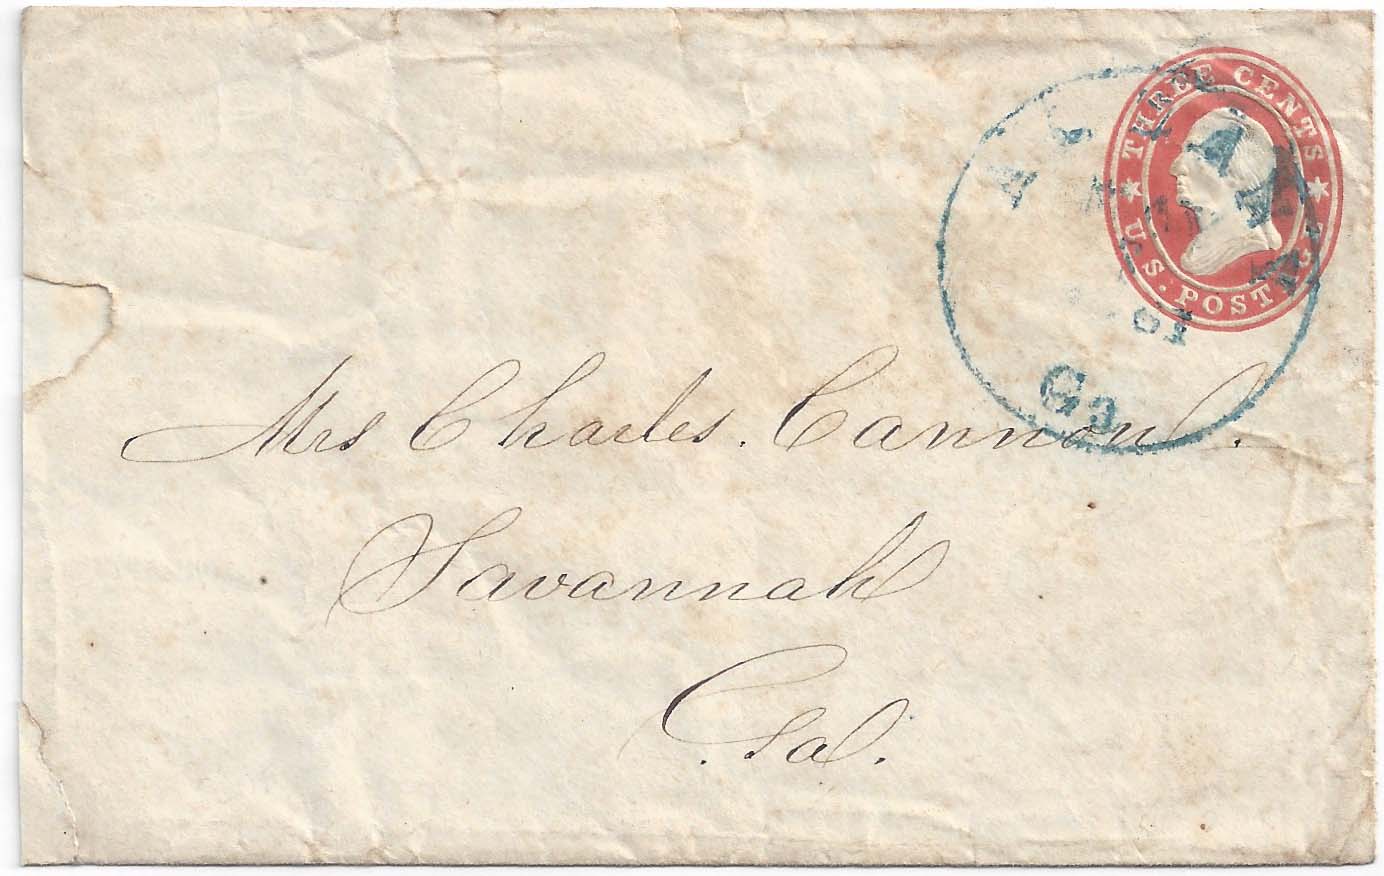 THREE CENTS
U.S. POSTAGE
ATLANTA
61
Ga
Mrs Charles. Cannon.
Savannah
Ga.